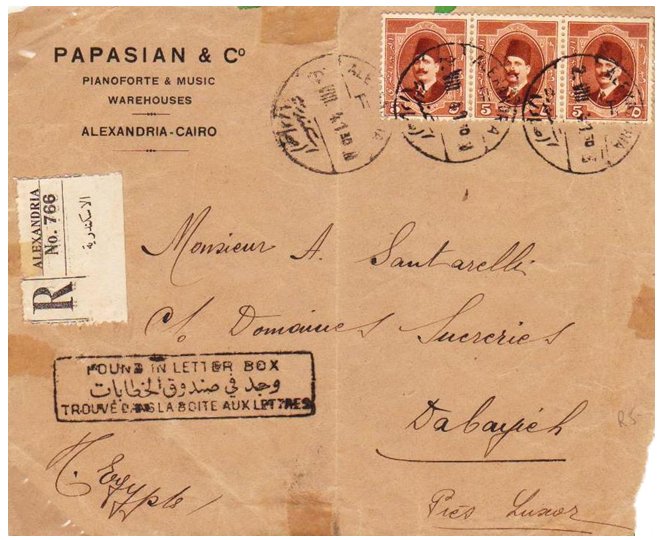 PAPASIAN & Cº
PIANOFORTE & MUSIC
WAREHOUSES
ALEXANDRIA-CAIRO
5
5
ALEXANDRIA
R
ALEXANDRIA
No. 766
الاسكندرية
Monsieur A. Santarelli
c/o Domaines Sucreries
FOUND IN LETTER BOX
وجد في صندوق الخطابات
TROUVÉ DANS LA BOITE AUX LETTRES
Dabayieh
H. Egypte
Près Luxor